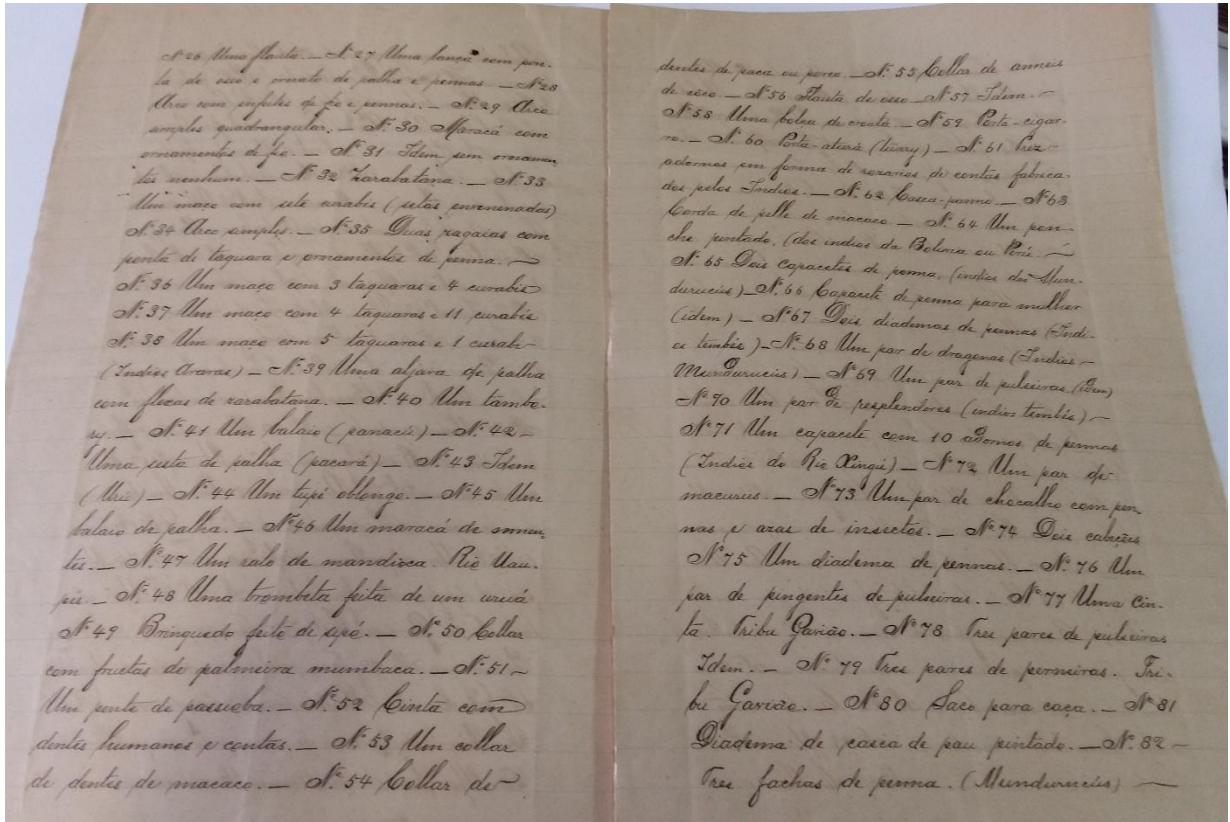 Nº 26 Uma flauta. — Nº 27 Uma lança com pon-
ta de osso e ornato de palha e pennas. — Nº 28
Arco com enfeites de fio e pennas. — Nº 29 Arco
simples quadrangular. — Nº 30 Maracá com
ornamentos de fio. — Nº 31 Idem sem ornamen-
tos nenhum. — Nº 32 Zarabatana. — Nº 33
Um maço com sete curabis (setas envenenadas)
Nº 34 Arco simples. — Nº 35 Duas zagaias com
ponta de taquara e ornamentos de penna. —
Nº 36 Um maço com 3 taquaras e 4 curabis
Nº 37 Um maço com 4 taquaras e 11 curabis
Nº 38 Um maço com 5 taquaras e 1 curabi —
(Indios Araras) — Nº 39 Uma aljava de palha
com flexas de zarabatana. — Nº 40 Um tambo-
ry. — Nº 41 Um balaio (panacú) — Nº 42 —
Uma cesta de palha (pacará) — Nº 43 Idem
(Urú) — Nº 44 Um tupé oblongo. — Nº 45 Um
balaio de palha. — Nº 46 Um maracá de
Nº 47 Um ralo de mandioca. Rio Uau-
pés — Nº 48 Uma trombeta feita de um uruá
Nº 49 Brinquedo feito de sipó. — Nº 50 Collar
com fructas de palmeira mumbaca. — Nº 51 —
Um pente de passioba. — Nº 52 Cinta com
dentes humanos e contas. — Nº 53 Um collar
de dentes de macaco. — Nº 54 Collar de —
dentes de paca ou porco. — Nº 55 Collar de anneis
de côco. — Nº 56 Flauta de osso — Nº 57 Idem. —
Nº 58 Uma bolsa de croatá. — Nº 59 Porta-cigar-
ro. — Nº 60 Porta-aturá (tûury) — Nº 61 Trez —
adornos em forma de rosarios de contas fabrica-
dos pelos Indios. — Nº 62 Casca-panno. — Nº 63
Corda de pelle de macaco. — Nº 64 Um pon-
che pintado, (dos indios da Bolivia ou Perú. —
Nº 65 Dois capacetes de penna, (indios dos Mun-
durucús) — Nº 66 Capacete de penna para mulher
(idem) — Nº 67 Dois diademas de pennas (Indi-
os tembés) — Nº 68 Um par de dragonas (Indios —
Mundurucús) — Nº 69 Um par de pulseiras (idem)
Nº 70 Um par de resplendores (indios tembés) —
Nº 71 Um capacete com 10 adornos de pennas
(Indios do Rio Xingú) — Nº 72 Um par de
macurús. — Nº 73 Um par de chocalho com pen
nas e azas de insectos. — Nº 74 Dois cabeções
Nº 75 Um diadema de pennas. — Nº 76 Um
par de pingentes de pulseiras. — Nº 77 Uma cin-
ta. Tribu Gavião. — Nº 78 Tres pares de pulseiras
Idem. — Nº 79 Tres pares de perneiras. Tri-
bu Gavião. — Nº 80 Saco para caça. — Nº 81
Diadema de casca de pau pintado. — Nº 82 —
Tres fachas de penna. (Mundurucús) —